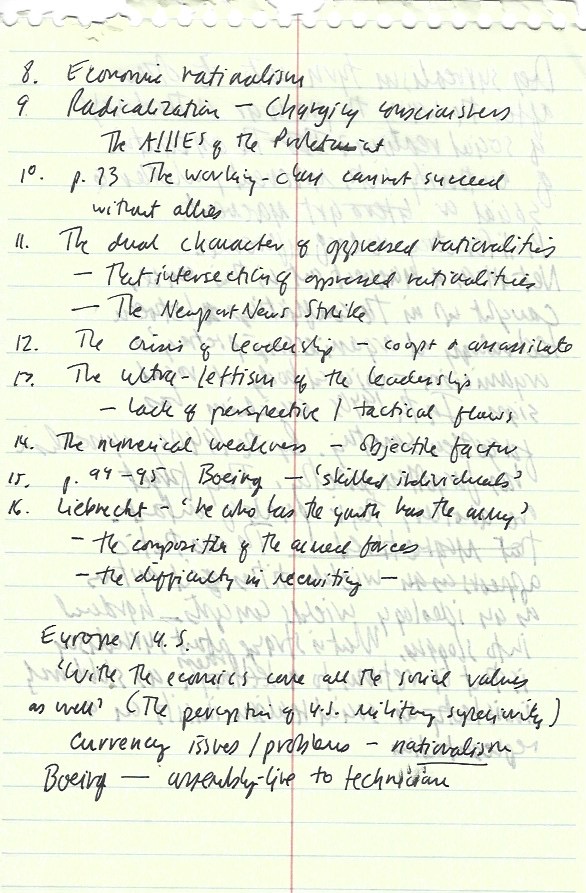 8. Economic rationalism
9 Radicalization – Changing consciousness
The ALLIES of the Proletariat
10. p. 73 The working-class cannot succeed
without allies
11. The dual character of oppressed nationalities
– That intersection of oppressed nationalities
– The Newport News Strike
12. The crisis of leadership – coopt & assassinate
13. The ultra-leftism of the leadership
– lack of perspective / tactical flaws
14. The numerical weakness – objective factor
15. p. 94-95 Boeing – 'skilled individuals'
16. Liebknecht – 'he who has the youth has the army'
– the composition of the armed forces
– the difficulty in recruiting –
Europe / U.S.
'With the economics come all the social values
as well' (The perception of U.S. military superiority)
Currency issues / problems – nationalism
Boeing — assembly-line to technician